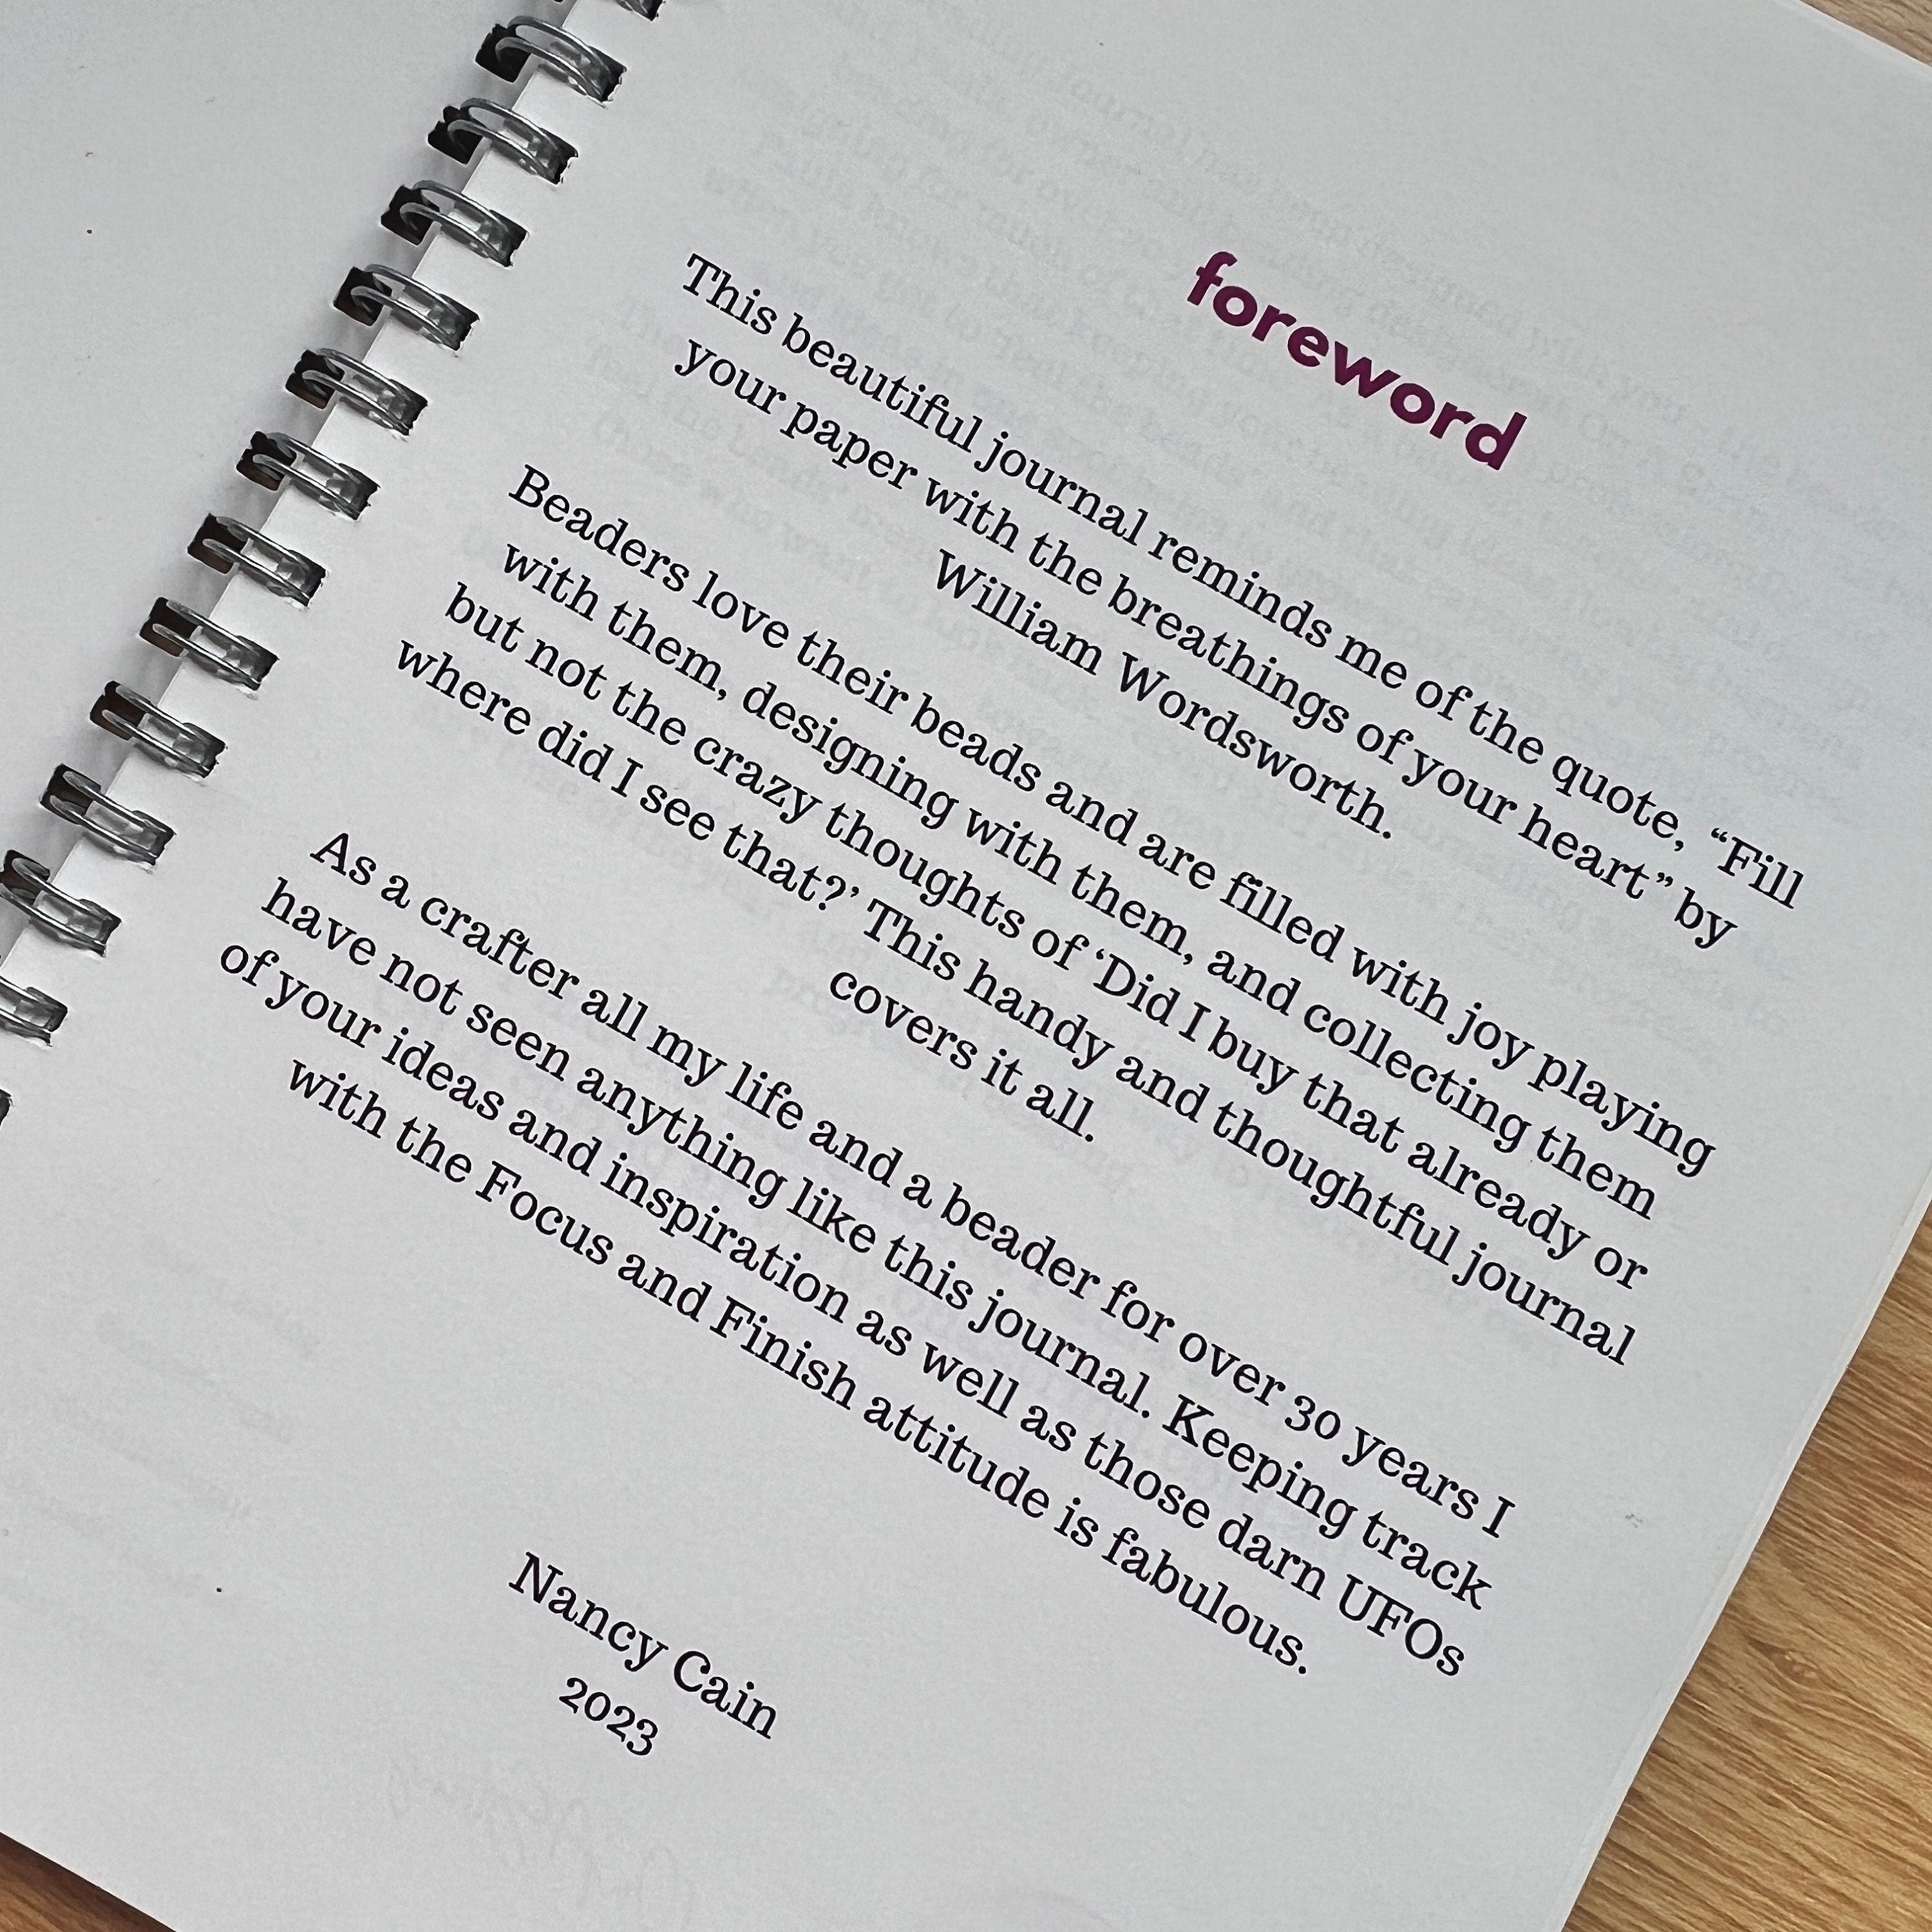 foreword
This beautiful journal reminds me of the quote, “Fill
your paper with the breathings of your heart” by
William Wordsworth.
Beaders love their beads and are filled with joy playing
with them, designing with them, and collecting them
but not the crazy thoughts of ‘Did I buy that already or
where did I see that?’ This handy and thoughtful journal
covers it all.
As a crafter all my life and a beader for over 30 years I
have not seen anything like this journal. Keeping track
of your ideas and inspiration as well as those darn UFOs
with the Focus and Finish attitude is fabulous.
Nancy Cain
2023